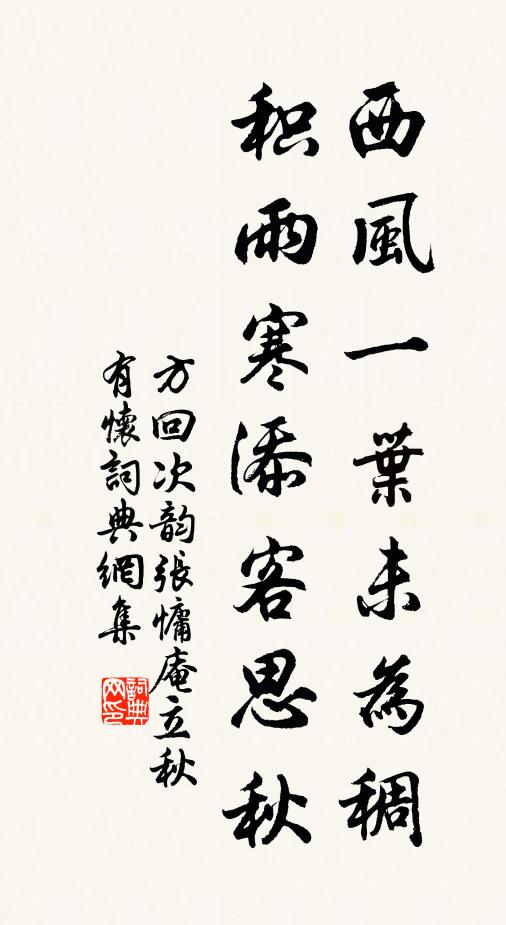 西風一葉未為稠
积雨寒添客思秋
方回次韵張慵庵立秋
有懷詞典網集
詞典
网印